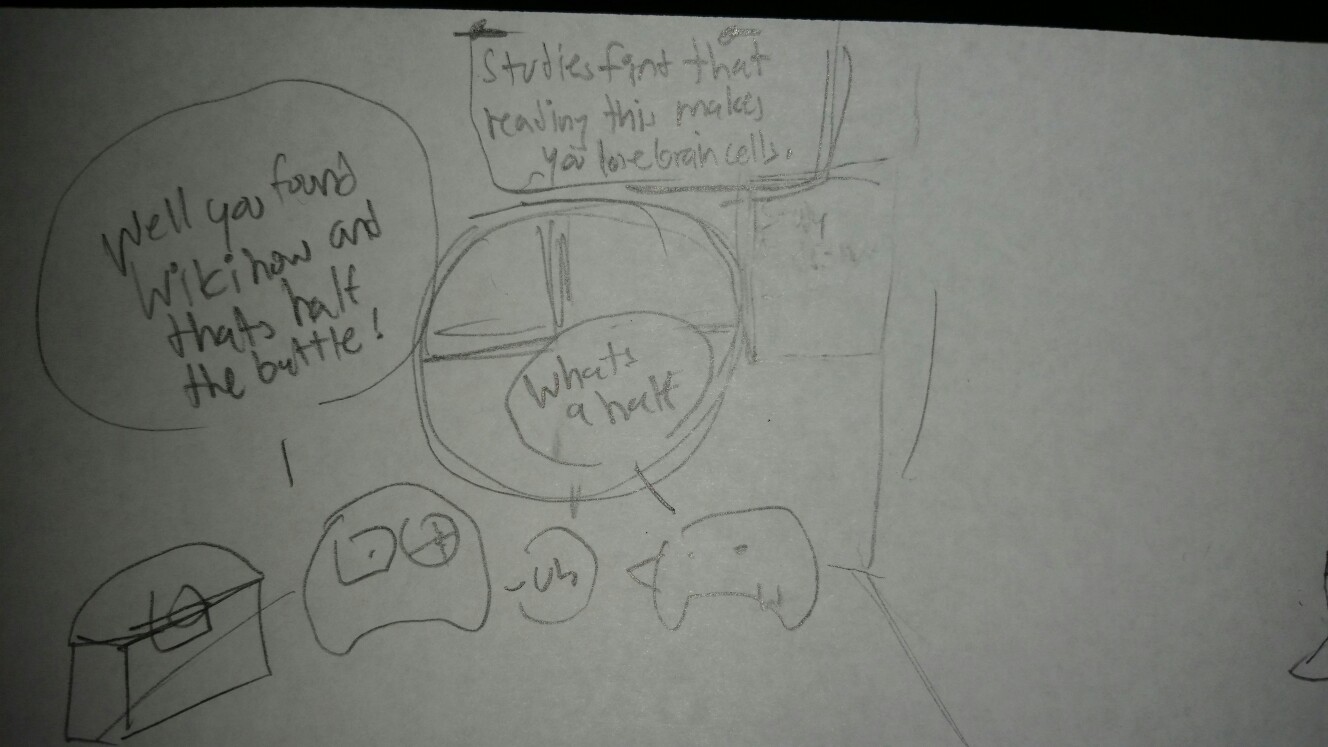 Studies fint that
reading this makes
you lose brain cells.
Well you found
Wikihow and
thats half
the battle!
Whats
a half
-uh